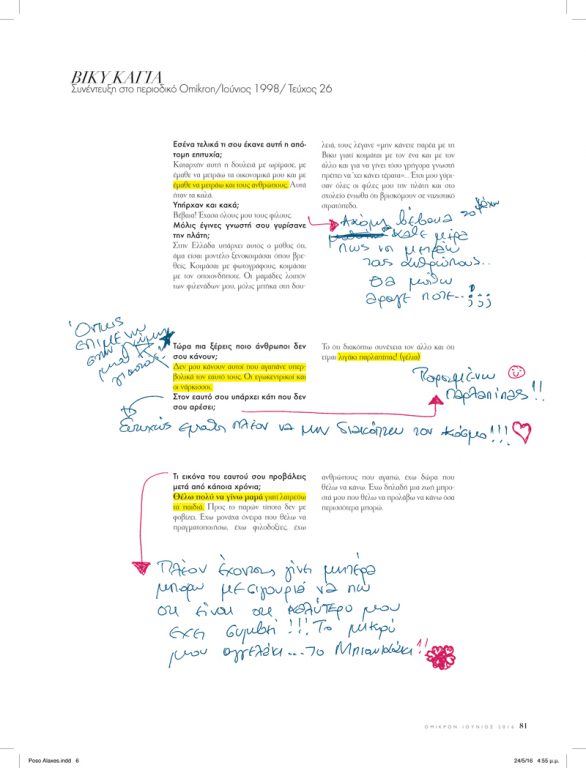 ΒΙΚΥ ΚΑΓΙΑ
Συνέντευξη στο περιοδικό Omikron/Ιούνιος 1998/ Τεύχος 26
Εσένα τελικά τι σου έκανε αυτή η από-
τομη επιτυχία;
Καταρχήν αυτή η δουλειά με ωρίμασε, με
έμαθε να μετράω τα οικονομικά μου και με
έμαθε να μετράω και τους ανθρώπους. Αυτά
ήταν τα καλά.
Υπήρχαν και κακά;
Βέβαια! Έχασα όλους μου τους φίλους.
Μόλις έγινες γνωστή σου γυρίσανε
την πλάτη;
Στην Ελλάδα υπάρχει αυτός ο μύθος ότι,
άμα είσαι μοντέλο ξενοκοιμάσαι όπου βρε-
θείς. Κοιμάσαι με φωτογράφους, κοιμάσαι
με τον οποιονδήποτε. Οι μαμάδες λοιπόν
των φιλενάδων μου, μόλις μπήκα στη δου-
λειά, τους λέγανε «μην κάνετε παρέα με τη
Βίκυ γιατί κοιμάται με τον ένα και με τον
άλλο και για να γίνει τόσο γρήγορα γνωστή
πρέπει να 'χει κάνει τέρατα»... Έτσι μου γύρι-
σαν όλες οι φίλες μου την πλάτη και στο
σχολείο ένιωθα ότι βρισκόμουν σε ναζιστικό
στρατόπεδο.
Ακόμη βέβαια το ψάχνω
κάθε μέρα
πως να μετράω
τους ανθρώπους..
Θα μάθω
άραγε ποτέ...;;;
Όπως
επιμένω
στην γνώμη
μου
γι' αυτό..
Τώρα πια ξέρεις ποιο άνθρωποι δεν
σου κάνουν;
Δεν μου κάνουν αυτοί που αγαπάνε υπερ-
βολικά τον εαυτό τους. Οι εγωκεντρικοί και
οι νάρκισσοι.
Στον εαυτό σου υπάρχει κάτι που δεν
σου αρέσει;
Το ότι διακόπτω συνέχεια τον άλλο και ότι
είμαι λιγάκι παρλαπίπας! (γέλια)
Παραμένω
παρλαπίπας!!
Ευτυχώς έμαθα πλέον να μην διακόπτω τον κόσμο!!!
Τι εικόνα του εαυτού σου προβάλεις
μετά από κάποια χρόνια;
Θέλω πολύ να γίνω μαμά γιατί λατρεύω
τα παιδιά. Προς το παρόν τίποτα δεν με
φοβίζει. Έχω μονάχα όνειρα που θέλω να
πραγματοποιήσω, έχω φιλοδοξίες, έχω
ανθρώπους που αγαπώ, έχω δώρα που
θέλω να κάνω. Έχω δηλαδή μια ζωή μπρο-
στά μου που θέλω να προλάβω να κάνω όσα
περισσότερα μπορώ.
Πλέον έχοντας γίνει μητέρα
μπορώ με σιγουριά να πω
ότι είναι ότι καλύτερο μου
έχει συμβεί!!! Το μικρό
μου αγγελάκι...το Μπιανκάκι!!
ΟΜΙΚΡΟΝ ΙΟΥΝΙΟΣ 2016 81
Poso Alaxes.indd 6
24/5/16 4:55 μ.μ.